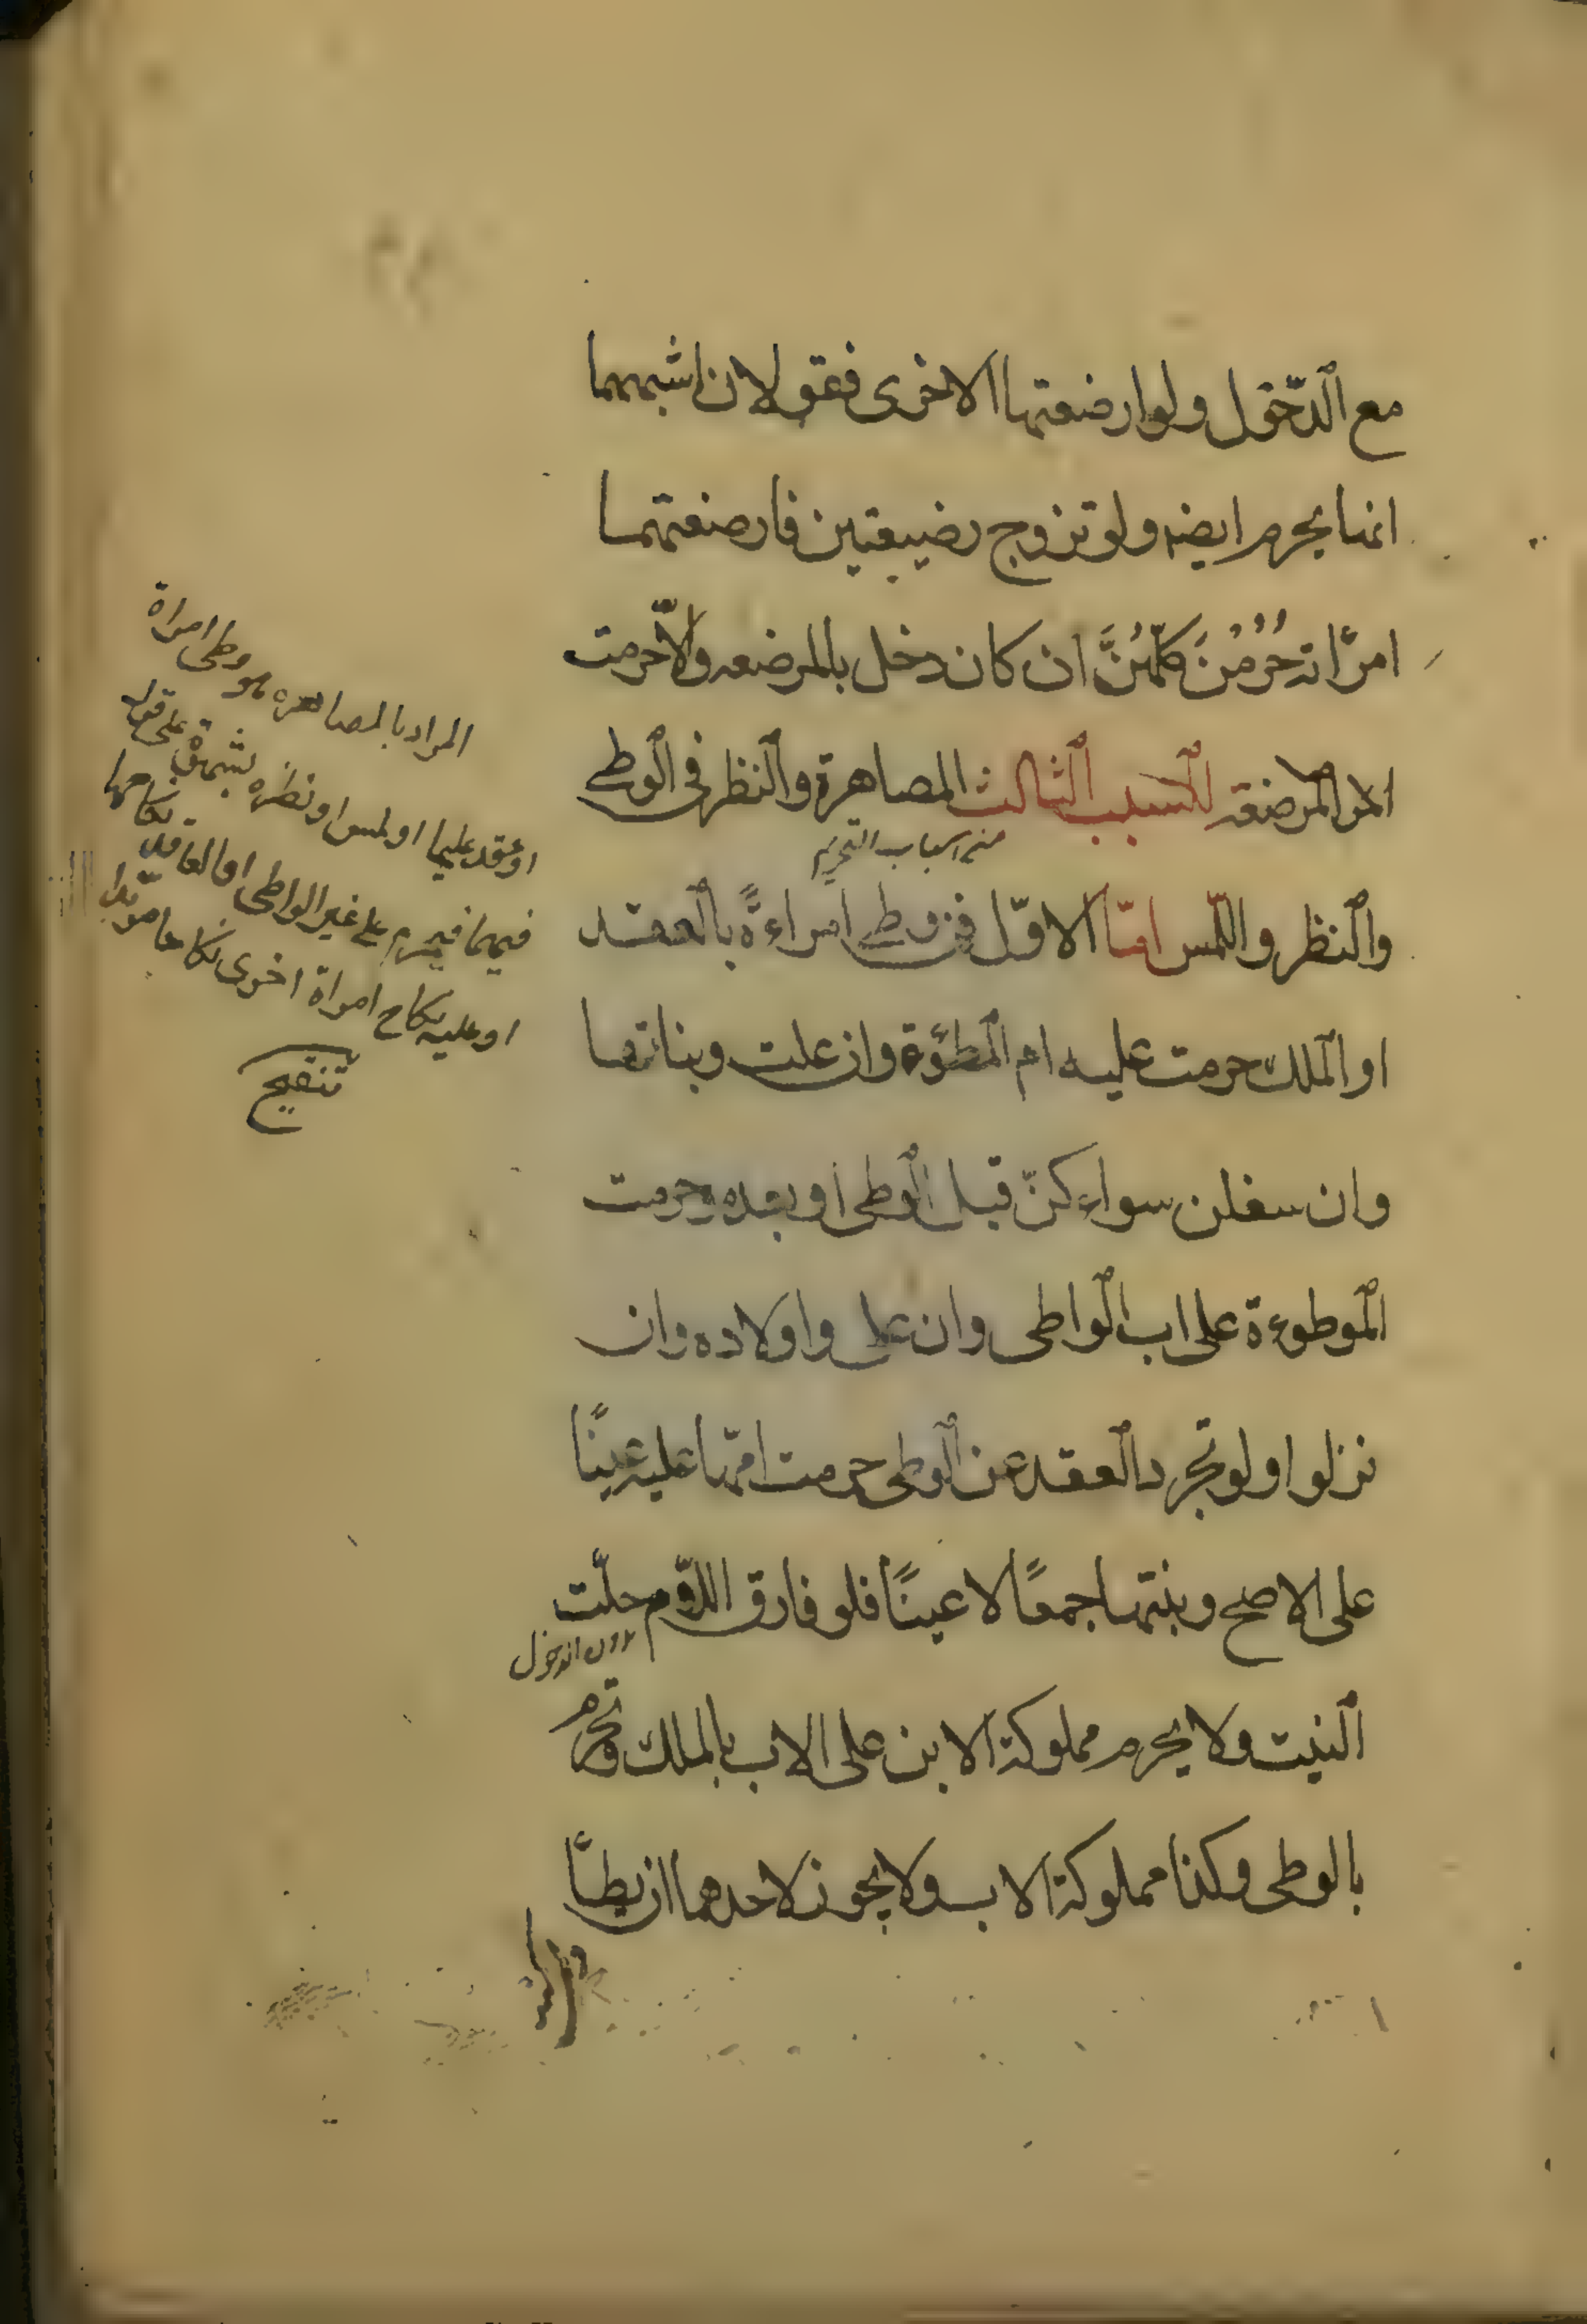 مع الدّخول ولو ارضعتها الاخرى فقولان اشبههما
انها يحرم ايضه ولو تزوج رضيعتين فارضعتهما
امرأته حَرُمْنَ كلّهُنَّ ان كان دخل بالمرضعه والّا حرمت
المرضعة السبب الثالث المصاهرة والنظر في الوطى
من اسباب التحريم
والنظر واللّمس امّا الاوّل فمن وطى امراءةً بالعقد
او الملك حرمت عليه ام الموطؤة وان علت وبناتها
وان سفلن سواء كنّ قبل الوطى او بعده وحرمت
الموطوءة على اب الواطى وان على واولاده وان
نزلوا ولو تجرد العقد عن الوطى حرمت امّها عليه عينًا
على الاصح وبنتها جمعًا لا عينًا فلو فارق الامّ حلّت
بدون الدخول
البنت ولا يحرم مملوكة الابن على الاب بالملك وتحرم
بالوطى وكذا مملوكة الاب ولا يجوز لاحدهما ان يطأ
المراد بالمصاهره هو وطى امراة
او عقد عليها او لمس او نظره بشهوة على قول
فيهما فيحرم على غير الواطى او العاقد نكاحها
او عليه نكاح امراة اخرى نكاحا مؤبدا
تنقيح